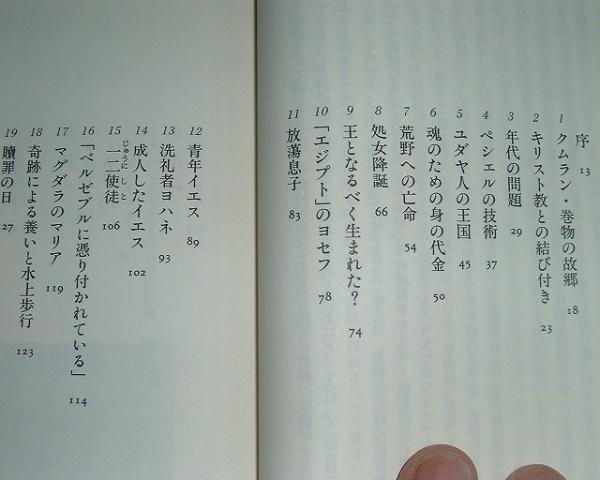 序 13
1 クムラン・巻物の故郷 18
2 キリスト教との結び付き 23
3 年代の問題 29
4 ペシェルの技術 37
5 ユダヤ人の王国 45
6 魂のための身の代金 50
7 荒野への亡命 54
8 処女降誕 66
9 王となるべく生まれた? 74
10 「エジプト」のヨセフ 78
11 放蕩息子 83
12 青年イエス 89
13 洗礼者ヨハネ 93
14 成人したイエス 102
15 一二使徒 106
じゅうにしと
16 「ベルゼブルに憑り付かれている」 114
17 マグダラのマリア 119
18 奇跡による養いと水上歩行 123
19 贖罪の日 27